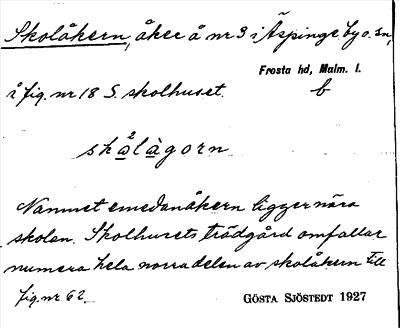 Skolåkern, åker å nr 3 i Äspinge by o. sn,
Frosta hd, Malm. l.
å fig. nr 18 S. skolhuset. b
skålàgorn
Namnet emedan åkern ligger nära
skolan. Skolhusets trädgård omfattar
numera hela norra delen av skolåkern till
fig. nr 62.
GÖSTA SJÖSTEDT 1927